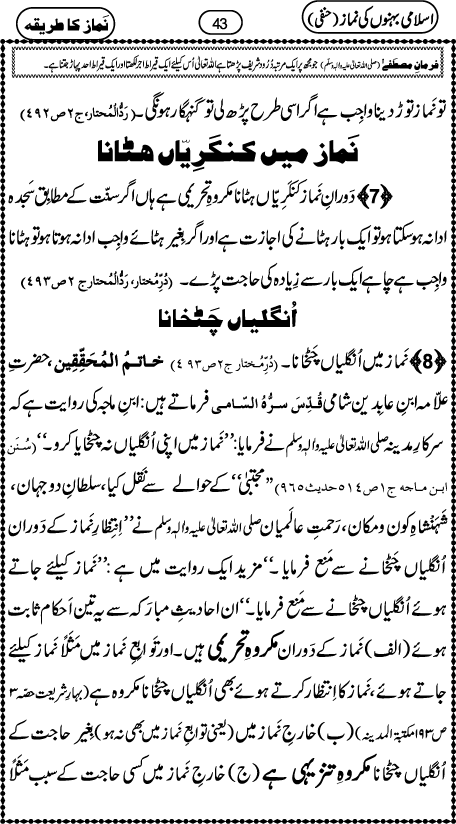 اسلامی بہنوں کی نماز (حنفی)
43
نَماز کا طریقہ
فرمانِ مصطفٰے (صلی اللہ تعالیٰ علیہ والہٖ وسلم) جو مجھ پر ایک مرتبہ دُرود شریف پڑھتا ہے اللہ تعالیٰ اُس کیلئے ایک قیراط اجر لکھتا اور ایک قیراط احد پہاڑ جتنا ہے۔
تو نَماز توڑ دینا واجِب ہے اگر اسی طرح پڑھ لی تو گنہگار ہوگی۔ (رَدُّالْمُحتار، ج۲ ص۴۹۲)
نَماز میں کنکَرِیّاں ھٹانا
﴿7﴾ دَورانِ نَماز کنکَرِیّاں ہٹانا مکروہِ تحریمی ہے ہاں اگر سنّت کے مطابِق سَجدہ
ادا نہ ہوسکتا ہو تو ایک بار ہٹانے کی اجازت ہے اور اگر بِغیر ہٹائے واجِب ادا نہ ہوتا ہو تو ہٹانا
واجِب ہے چاہے ایک بار سے زِیادہ کی حاجت پڑے۔ (دُرِّمُختار، رَدُّالْمُحتار ج۲ ص۴۹۳)
اُنگلیاں چَٹخانا
﴿8﴾ نَماز میں اُنگلیاں چَٹخانا۔ (دُرِّمُختار ج۲ص۴۹۳) خاتمُ المُحَقِّقِین، حضرتِ
علّامہ ابنِ عابِدین شامی قُدِّسَ سِرُّہُ السَّامی فرماتے ہیں: ابنِ ماجہ کی روایت ہے کہ
سرکارِ مدینہ صلی اللہ تعالیٰ علیہ والہٖ وسلم نے فرمایا: ’’نَماز میں اپنی اُنگلیاں نہ چَٹخایا کرو۔‘‘ (سُنَن
ابنِ ماجه ج۱ ص۵۱۴ حدیث ۹۶۵) ’’مجتبٰی‘‘ کے حوالے سے نَقْل کیا، سلطانِ دو جہان،
شَہَنْشاہِ کون و مکان، رَحمتِ عالَمیان صلی اللہ تعالیٰ علیہ والہٖ وسلم نے ’’اِنتِظارِ نَماز کے دَوران
اُنگلیاں چَٹخانے سے مَنع فرمایا۔‘‘ مزید ایک روایت میں ہے: ’’نَماز کیلئے جاتے
ہوئے اُنگلیاں چَٹخانے سے مَنع فرمایا۔‘‘ ان احادیثِ مبارَکہ سے یہ تین اَحکام ثابت
ہوئے (الف) نَماز کے دَوران مکروہِ تحریمی ہیں۔ اور تَوابِعِ نَماز میں مَثَلاً نَماز کیلئے
جاتے ہوئے، نَماز کا اِنتِظار کرتے ہوئے بھی اُنگلیاں چَٹخانا مکروہ ہے (بہارِ شریعت حصّہ ۳
ص۱۹۳ مکتبۃ المدینہ) (ب) خارِجِ نَماز میں (یعنی تَوابِعِ نَماز میں بھی نہ ہو) بِغیر حاجت کے
اُنگلیاں چَٹخانا مکروہِ تنزیہی ہے (ج) خارِجِ نَماز میں کسی حاجت کے سبب مَثَلاً